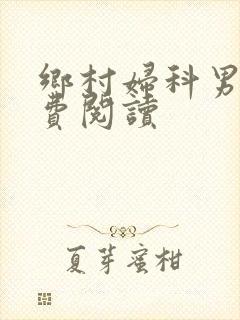 鄉村婦科男
費閱讀
夏芽蜜柑